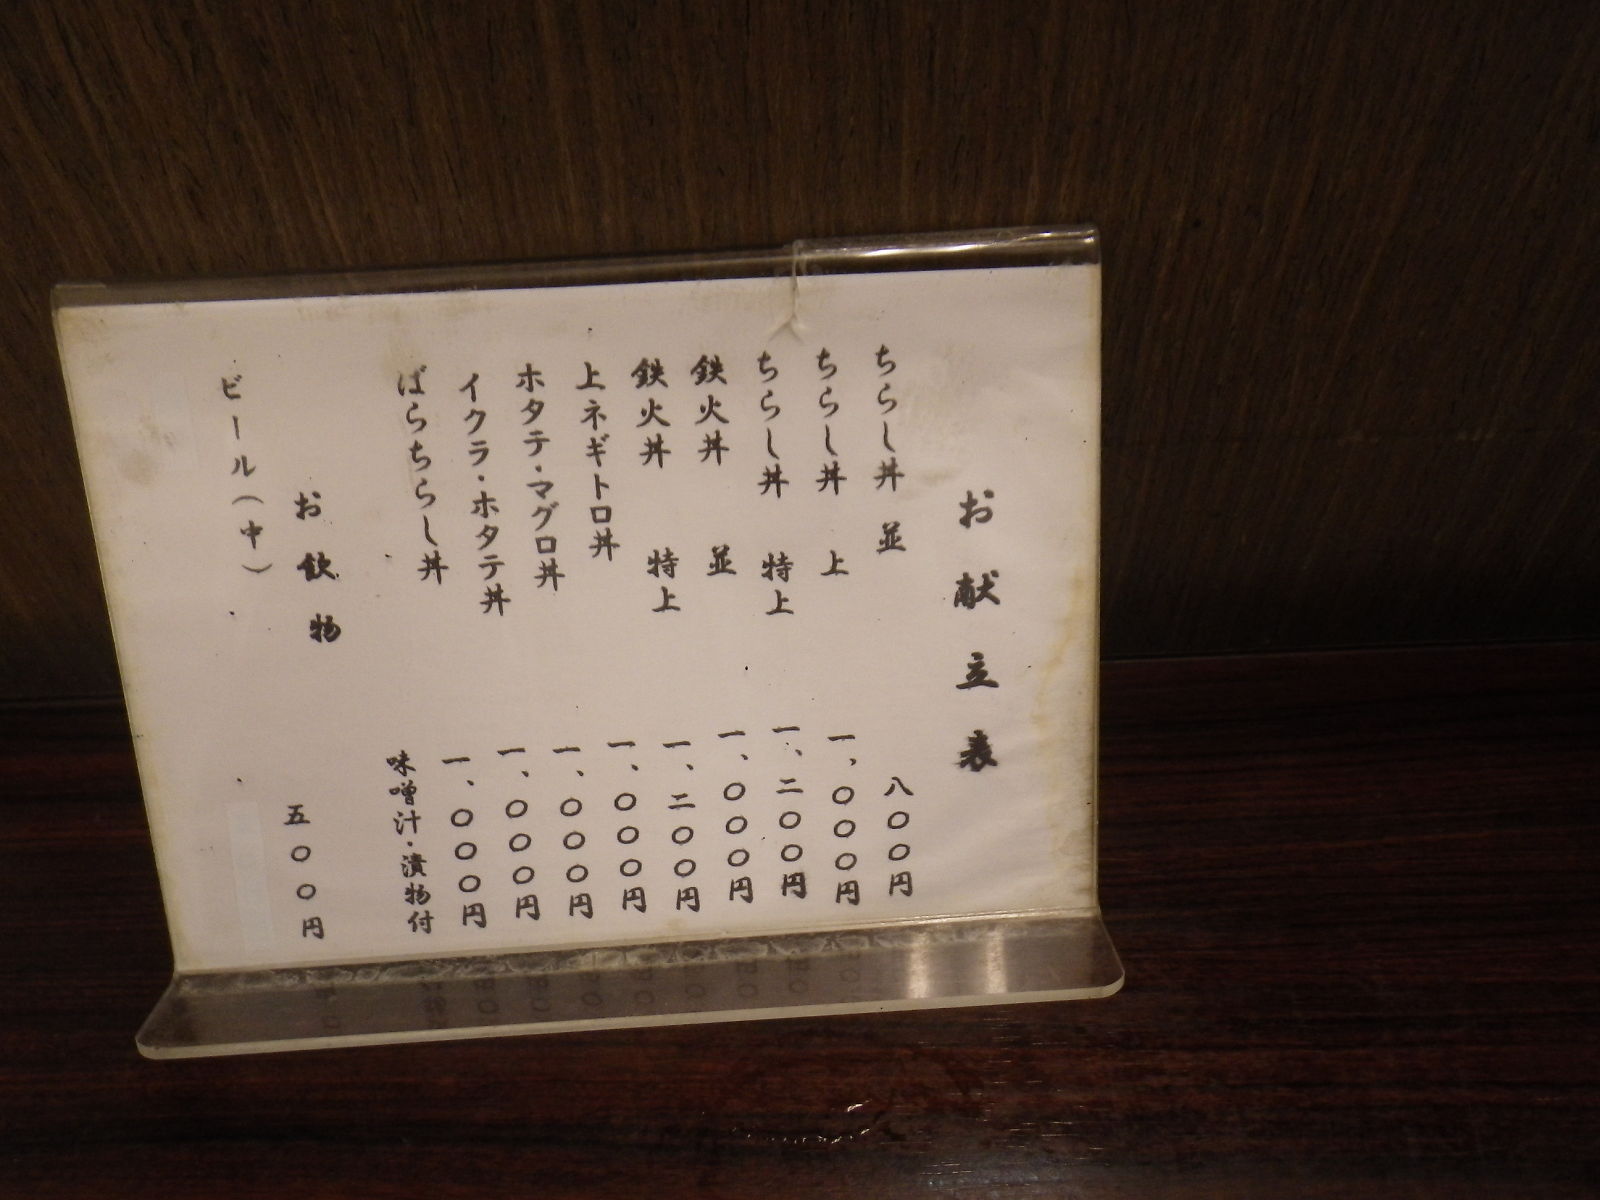 お献立表
ちらし丼 並 八〇〇円
ちらし丼 上 一、〇〇〇円
ちらし丼 特上 一、二〇〇円
鉄火丼 並 一、〇〇〇円
鉄火丼 特上 一、二〇〇円
上ネギトロ丼 一、〇〇〇円
ホタテ・マグロ丼 一、〇〇〇円
イクラ・ホタテ丼 一、〇〇〇円
ばらちらし丼 一、〇〇〇円
味噌汁・漬物付
お飲物
ビール(中) 五〇〇円